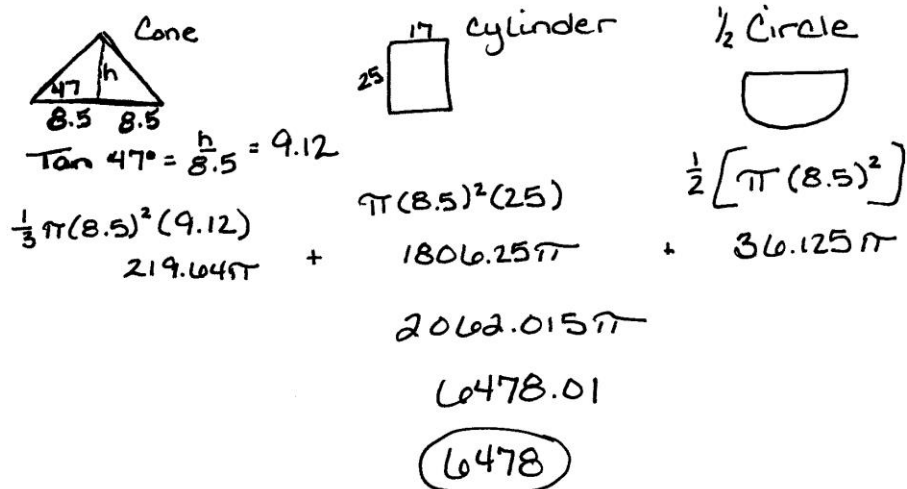 Cone
47 h
8.5 8.5
Tan 47° = h/8.5 = 9.12
1/3 π(8.5)²(9.12)
219.64π
+
Cylinder
17
25
π(8.5)²(25)
1806.25π
+
½ Circle
1/2 [π(8.5)²]
36.125π
2062.015π
6478.01
6478